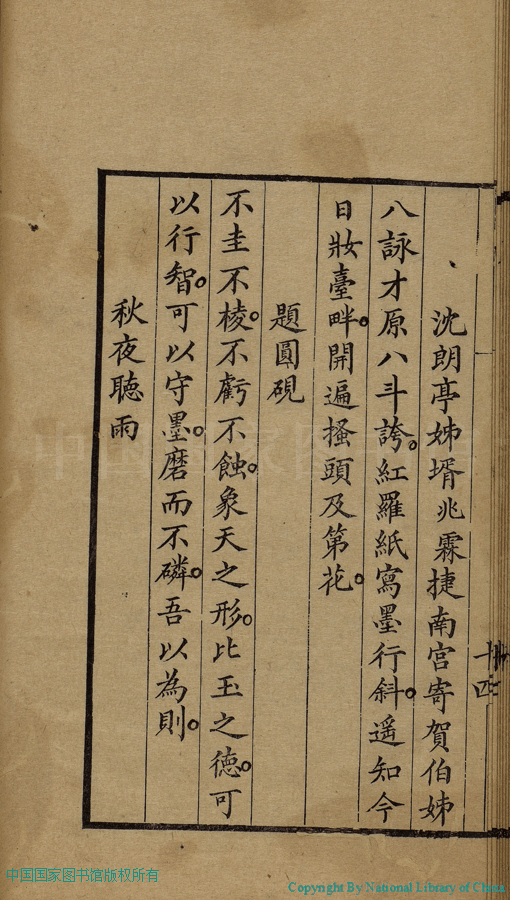 沈朗亭姊壻兆霖捷南宮寄賀伯姊
八詠才原八斗誇。紅羅紙寫墨行斜。遥知今
日妝臺畔。開遍搔頭及第花。
題圓硯
不圭不棱。不虧不蝕。象天之形。比玉之德。可
以行智。可以守墨。磨而不磷。吾以為則。
秋夜聽雨
十四
中国国家图书馆版权所有
Copyright By National Library of China